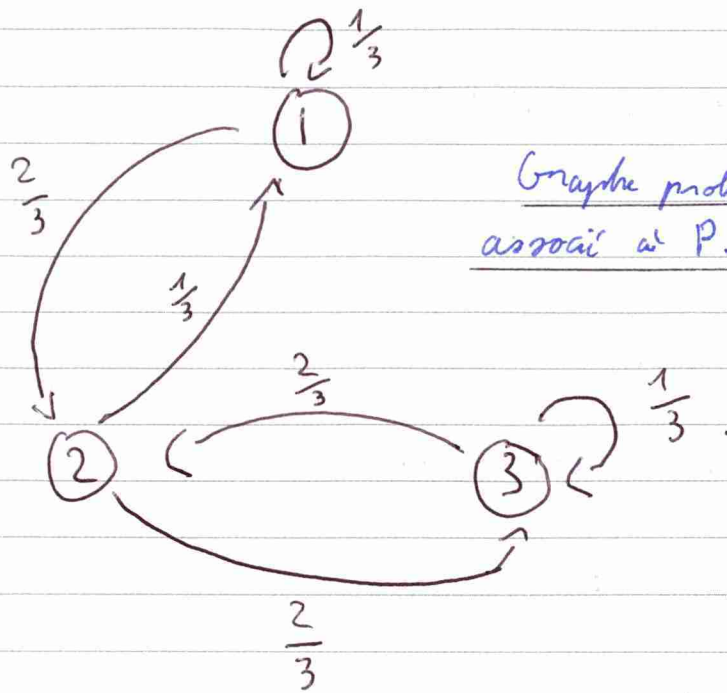 1/3
1
2/3
Graphe prob
associé à P.
1/3
2/3
1/3
2
3
2/3